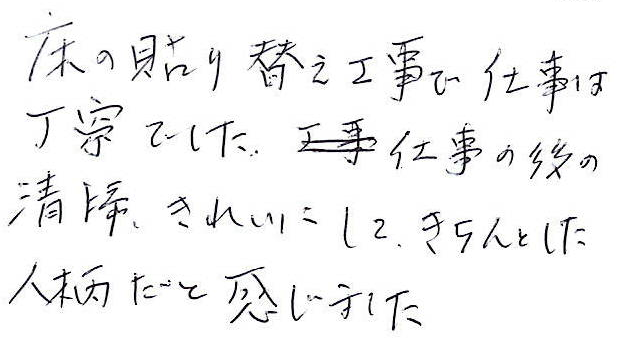 床の貼り替え工事で仕事は
丁寧でした。工事仕事の後の
清掃、きれいにして、きちんとした
人柄だと感じました